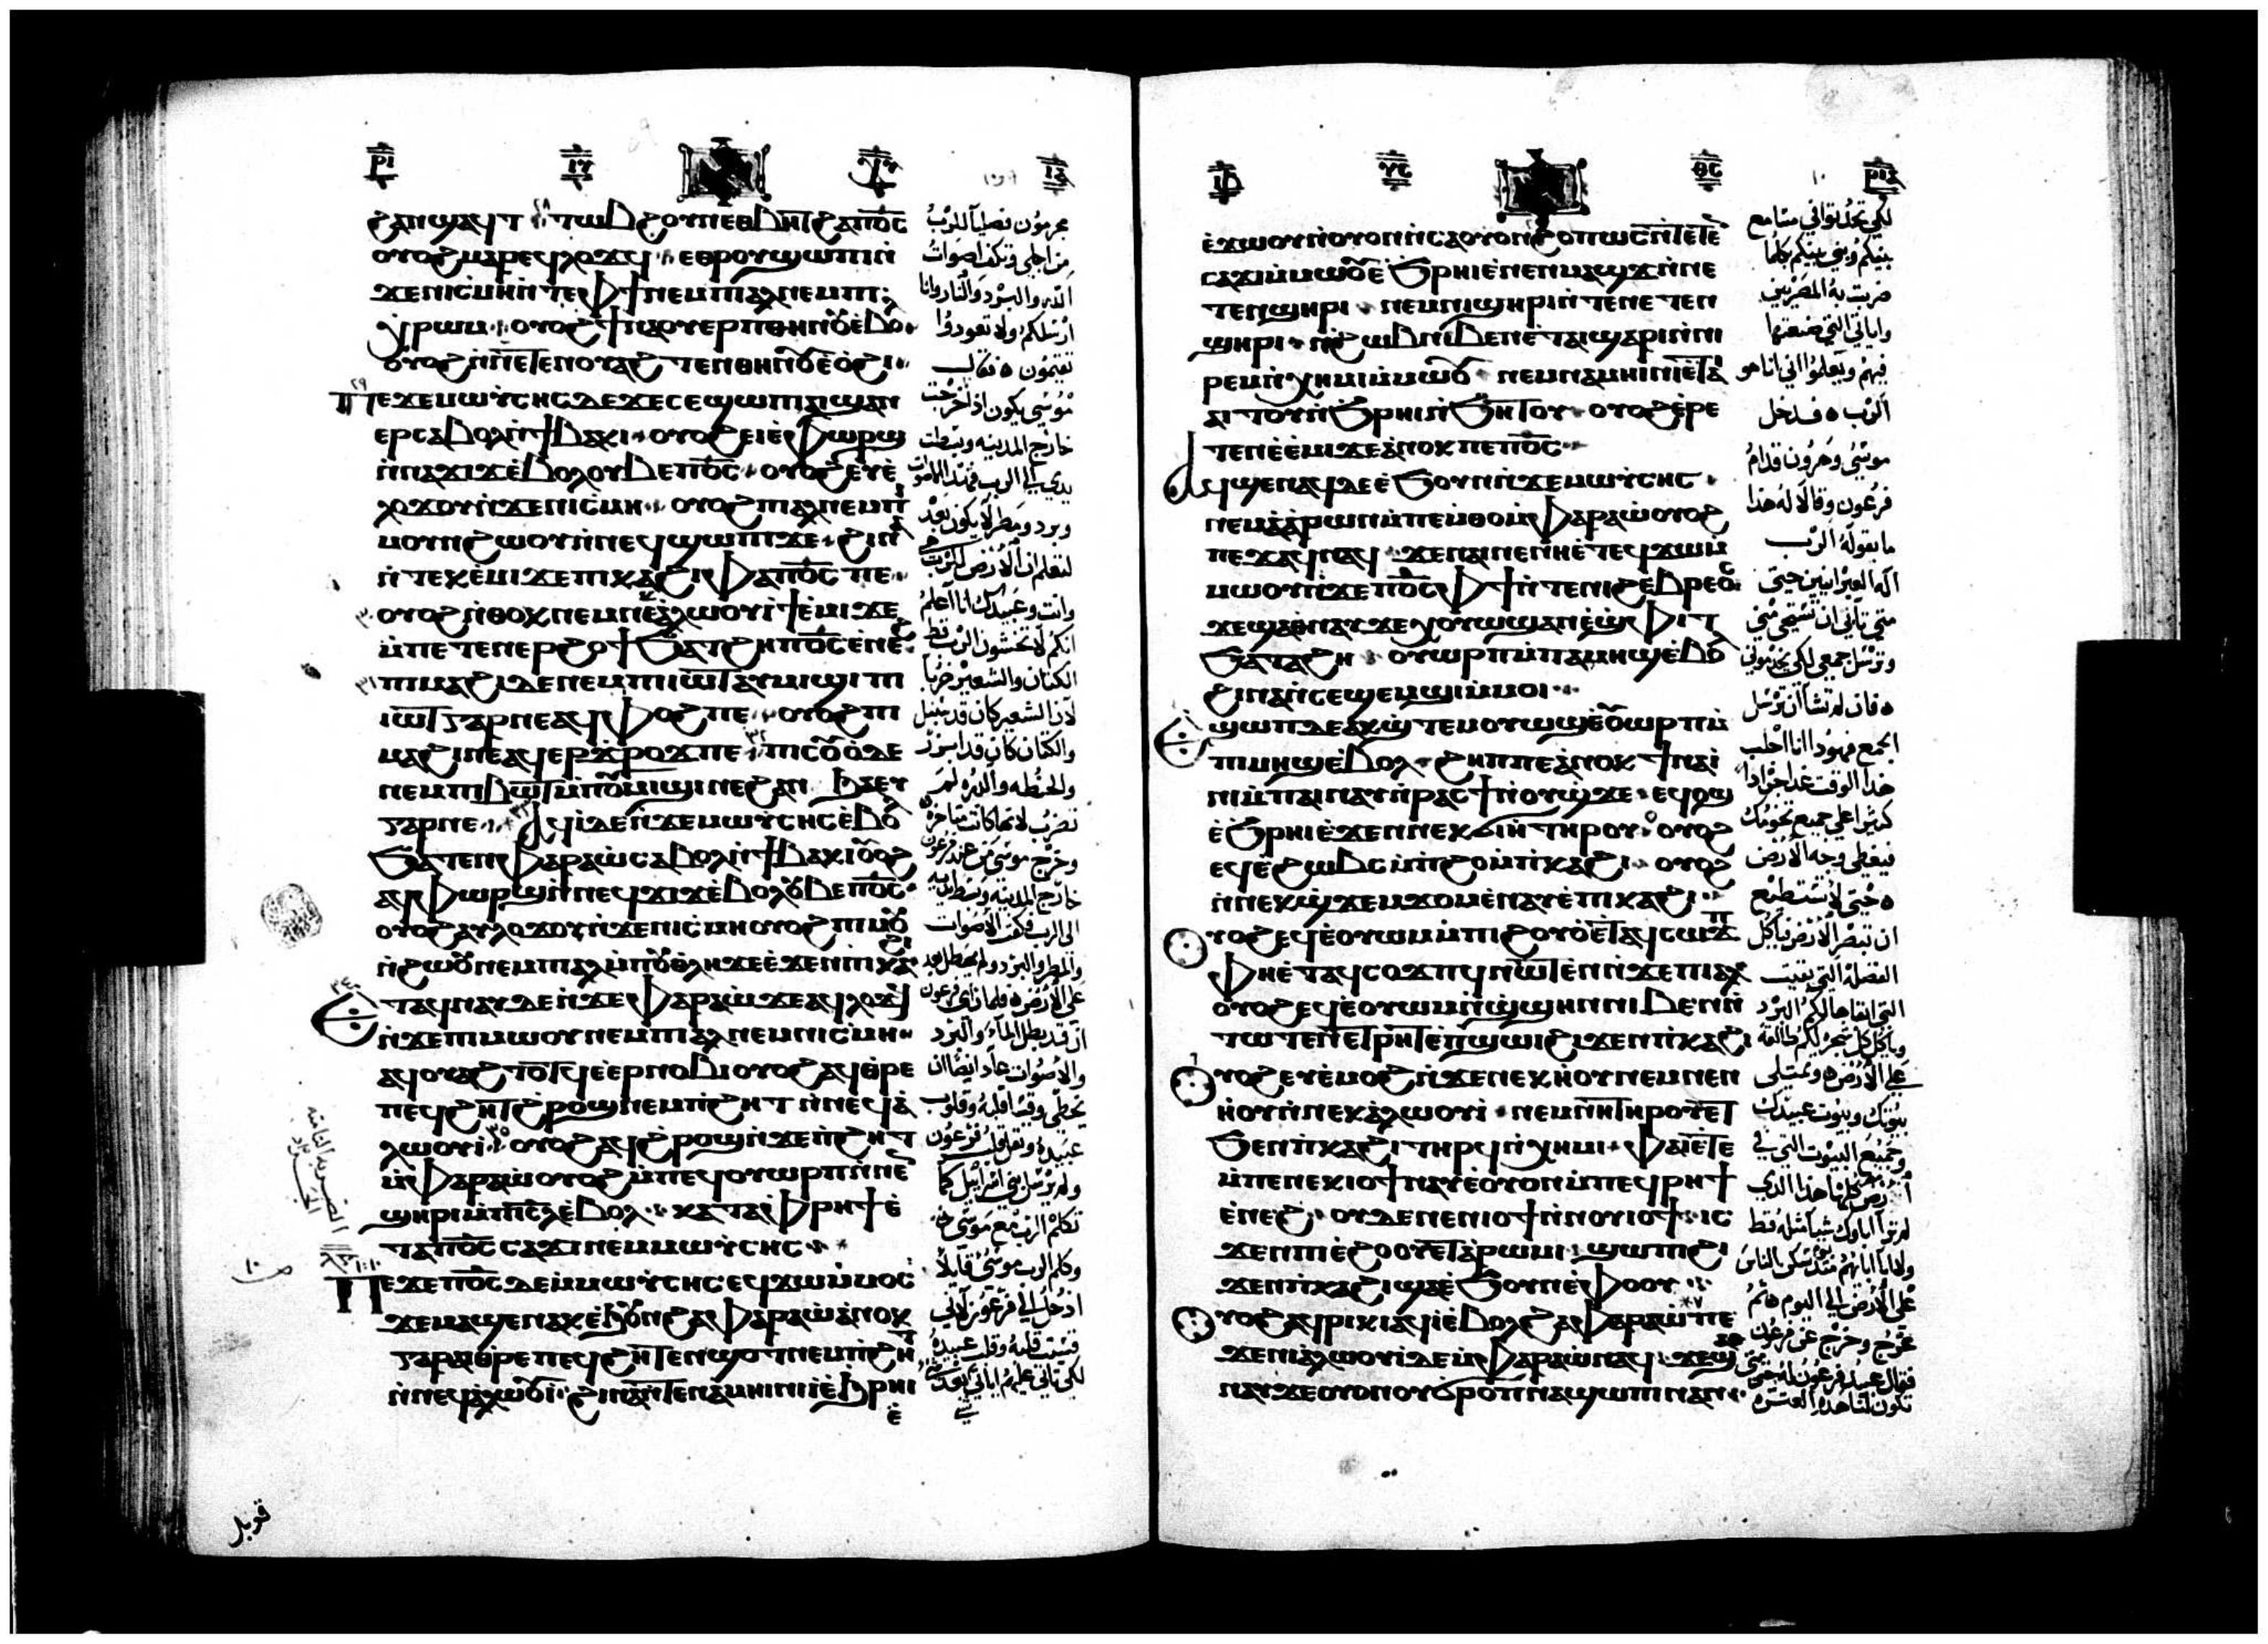 ϩⲁⲛϣⲁϥⲧ ⲧⲱⲃϩ ⲟⲩⲛ ⲉⲑⲃⲏⲧ ϩⲁ ⲡⲟ̅ⲥ̅
ⲟⲩⲟϩ ⲙⲁⲣⲉϥⲗⲟϫϥ ⲉⲑⲣⲟⲩϣⲱⲡⲓ ⲛ̀
ϫⲉ ⲛⲓⲥ̀ⲙⲏ ⲛ̀ⲧⲉ ⲫϯ ⲛⲉⲙ ⲡⲓⲁⲗ ⲛⲉⲙ ⲡⲓ
ⲭⲣⲱⲙ ⲟⲩⲟϩ ϯⲛⲁⲟⲩⲉⲣⲡ ⲑⲏⲛⲟⲩ ⲉ̀ⲃⲟⲗ
ⲟⲩⲟϩ ⲛ̀ⲛⲉⲧⲉⲛⲟⲩⲁϩ ⲧⲉⲛⲑⲏⲛⲟⲩ ⲉ̀ⲟ̀ϩⲓ
ⲡⲉϫⲉ ⲙⲱⲩ̀ⲥⲏⲥ ⲇⲉ ϫⲉ ⲉⲥⲉϣⲱⲡⲓ ⲁⲓϣⲁⲛ
ⲉⲣⲥⲁⲃⲟⲗ ⲛ̀ϯⲃⲁⲕⲓ ⲟⲩⲟϩ ⲉⲓⲉ̀ⲫⲱⲣϣ
ⲛ̀ⲛⲁϫⲓϫ ⲉ̀ⲃⲟⲗ ⲟⲩⲃⲉ ⲡⲟ̅ⲥ̅ ⲟⲩⲟϩ ⲉⲩⲉ̀
ⲗⲟϫⲟⲩ ⲛ̀ϫⲉ ⲛⲓⲥ̀ⲙⲏ ⲟⲩⲟϩ ⲡⲓⲁⲗ ⲛⲉⲙ ⲡⲓ
ⲙⲟⲩⲛϩⲱⲟⲩ ⲛ̀ⲛⲉϥϣⲱⲡⲓ ϫⲉ ϩⲓⲛⲁ
ⲛ̀ⲧⲉⲕⲉ̀ⲙⲓ ϫⲉ ⲡⲓⲕⲁϩⲓ ⲫⲁ ⲡⲟ̅ⲥ̅ ⲡⲉ
ⲟⲩⲟϩ ⲛ̀ⲑⲟⲕ ⲛⲉⲙ ⲛⲉⲕⲁ̀ⲗⲱⲟⲩⲓ̀ ϯⲉ̀ⲙⲓ ϫⲉ
ⲙ̀ⲡⲉⲧⲉⲛⲉⲣϩⲟϯ ϧⲁⲧϩⲏ ⲙ̀ⲡⲟ̅ⲥ̅ ⲉ̀ⲛⲉϩ
ⲡⲓⲙⲁϩⲓ ⲇⲉ ⲛⲉⲙ ⲡⲓⲓⲱⲧ ⲁⲩⲙⲓϣⲓ ⲡⲓ
ⲓⲱⲧ ⲅⲁⲣ ⲛⲉⲁϥⲫⲟϩ ⲡⲉ ⲟⲩⲟϩ ⲡⲓ
ⲙⲁϩⲓ ⲛⲉⲁϥⲉⲣϫ̀ⲣⲟϫ ⲡⲉ ⲡⲓⲥⲟⲩⲟ̀ ⲇⲉ
ⲛⲉⲙ ⲡⲓⲃⲱϯ ⲙ̀ⲡⲟⲩⲙⲓϣⲓ ⲛⲉϩⲁⲛ ϧⲁⲉⲩ
ⲅⲁⲣ ⲛⲉ ⲁϥⲓ̀ ⲇⲉ ⲛ̀ϫⲉ ⲙⲱⲩ̀ⲥⲏⲥ ⲉ̀ⲃⲟⲗ
ϧⲁⲧⲉⲛ ⲫⲁⲣⲁⲱ̀ ⲥⲁⲃⲟⲗ ⲛ̀ϯⲃⲁⲕⲓ ⲟⲩⲟϩ
ⲁϥⲫⲱⲣϣ ⲛ̀ⲛⲉϥϫⲓϫ ⲉ̀ⲃⲟⲗ ⲟⲩⲃⲉ ⲡⲟ̅ⲥ̅
ⲟⲩⲟϩ ⲁⲩⲗⲟϫⲟⲩ ⲛ̀ϫⲉ ⲛⲓⲥ̀ⲙⲏ ⲟⲩⲟϩ ⲡⲓⲙⲟⲩ
ⲛ̀ϩⲱⲟⲩ ⲛⲉⲙ ⲡⲓⲁⲗ ⲙ̀ⲡⲟⲩⲑⲗⲏ ϫⲉ ⲉ̀ϫⲉⲛ ⲡⲓⲕⲁϩⲓ
ⲉⲧⲁϥⲛⲁⲩ ⲇⲉ ⲛ̀ϫⲉ ⲫⲁⲣⲁⲱ̀ ϫⲉ ⲁϥⲗⲟϫϥ
ⲛ̀ϫⲉ ⲡⲓⲙⲱⲟⲩ ⲛⲉⲙ ⲡⲓⲁⲗ ⲛⲉⲙ ⲛⲓⲥ̀ⲙⲏ
ⲁϥⲟⲩⲁϩⲧⲟⲧϥ ⲉⲉⲣⲛⲟⲃⲓ ⲟⲩⲟϩ ⲁϥⲑⲣⲉ
ⲡⲉϥϩⲏⲧ ϩ̀ⲣⲟϣ ⲛⲉⲙ ⲡ̀ϩⲏⲧ ⲛ̀ⲛⲉϥⲁ̀
ⲗⲱⲟⲩⲓ̀ ⲟⲩⲟϩ ⲁϥϩ̀ⲣⲟϣ ⲛ̀ϫⲉ ⲡ̀ϩⲏⲧ
ⲙ̀ⲫⲁⲣⲁⲱ̀ ⲟⲩⲟϩ ⲙ̀ⲡⲉϥⲟⲩⲱⲣⲡ ⲛ̀ⲛⲉⲛ
ϣⲏⲣⲓ ⲙ̀ⲡⲓⲥ̅ⲗ̅ ⲉ̀ⲃⲟⲗ ⲕⲁⲧⲁ ⲫⲣⲏϯ ⲉ̀
ⲧⲁ ⲡⲟ̅ⲥ̅ ⲥⲁϫⲓ ⲛⲉⲙ ⲙⲱⲩ̀ⲥⲏⲥ
ⲡⲉϫⲉ ⲡⲟ̅ⲥ̅ ⲇⲉ ⲙ̀ⲙⲱⲩ̀ⲥⲏⲥ ⲉϥϫⲱ ⲙ̀ⲙⲟⲥ
ϫⲉ ⲙⲁϣⲉⲛⲁⲕ ⲉ̀ϧⲟⲩⲛ ϩⲁ ⲫⲁⲣⲁⲱ̀ ⲁ̀ⲛⲟⲕ
ⲅⲁⲣ ⲁⲓⲑⲣⲉ ⲡⲉϥϩⲏⲧ ⲉⲛϣⲟⲧ ⲛⲉⲙ ⲡ̀ϩⲏⲧ
ⲛ̀ⲛⲉϥⲁ̀ⲗⲱⲟⲩⲓ̀ ϩⲓⲛⲁ ⲛ̀ⲧⲉ ⲛⲁⲙⲏⲓⲛⲓ ⲓ̀ ⲉ̀ϩⲣⲏⲓ
ⲉ̀
مجرمون فصليا للرب
من اجلي وتكف اصوات
الله والبرد والنار وانا
ارسلكم ولا تعودوا
تقيمون فقال
موسى يكون اذا خرجت
خارج المدينه وبسطت
يدي الي الرب فتهدا الاصوات
وبرد ومطر لا يكون بعد
لتعلم ان الارض للرب
وانت وعبيدك انا اعلم
انكم لا تخشون الرب قط
الكتان والشعير ضربا
لان الشعير كان قد سنبل
والكتان كان قد ابزر
والحنطه والذره لم
تضرب لانها كانت متاخره
وخرج موسى من عند فرعون
خارج المدينه وبسط يديه
الى الرب فكفت الاصوات
والمطر والبرد ولم يهطل بعد
على الارض فلما راى فرعون
ان قد بطل الماء والبرد
والاصوات عاد ايضا ان
يخطى وقسا قلبه وقلوب
عبيده وثقل قلب فرعون
ولم يرسل بني اسراييل كما
تكلم الرب مع موسى
وكلم الرب موسى قايلا
ادخل الى فرعون لانى
قسيت قلبه وقلب عبيده
لكي تاتي عليهم اياتي
الضربه الثامنه
الجراد
قوبل
ⲉ̀ϫⲱⲟⲩ ⲛ̀ⲟⲩⲟⲛ ⲛ̀ⲥⲁ ⲟⲩⲟⲛ ϩⲟⲡⲱⲥ ⲛ̀ⲧⲉⲧⲉⲛ
ⲥⲁϫⲓ ⲙ̀ⲙⲱⲟⲩ ⲉ̀ϧⲣⲏⲓ ⲉ̀ⲛⲉⲛⲙⲁϣϫ ⲛ̀ⲛⲉ
ⲧⲉⲛϣⲏⲣⲓ ⲛⲉⲙ ⲛⲓϣⲏⲣⲓ ⲛ̀ⲧⲉ ⲛⲉⲧⲉⲛ
ϣⲏⲣⲓ ⲛ̀ϩⲱⲃ ⲛⲓⲃⲉⲛ ⲉ̀ⲧⲁⲓϣⲁⲣⲓ ⲛ̀ⲛⲓ
ⲣⲉⲙⲛ̀ⲭⲏⲙⲓ ⲙ̀ⲙⲱⲟⲩ ⲛⲉⲙ ⲛⲁⲙⲏⲓⲛⲓ ⲉ̀ⲧⲁⲓ
ⲁⲓⲧⲟⲩ ⲛ̀ϧⲣⲏⲓ ⲛ̀ϧⲏⲧⲟⲩ ⲟⲩⲟϩ ⲉⲣⲉ
ⲧⲉⲛⲉ̀ⲉ̀ⲙⲓ ϫⲉ ⲁ̀ⲛⲟⲕ ⲡⲉ ⲡⲟ̅ⲥ̅
ⲁϥϣⲉⲛⲁϥ ⲇⲉ ⲉ̀ϧⲟⲩⲛ ⲛ̀ϫⲉ ⲙⲱⲩ̀ⲥⲏⲥ
ⲛⲉⲙ ⲁ̀ⲁ̀ⲣⲱⲛ ⲙ̀ⲡⲉⲙ̀ⲑⲟ ⲙ̀ⲫⲁⲣⲁⲱ̀ ⲟⲩⲟϩ
ⲡⲉϫⲁϥ ⲛⲁϥ ϫⲉ ⲛⲁⲓ ⲛⲉⲛⲏ ⲉ̀ⲧⲉϥϫⲱ ⲙ̀
ⲙⲱⲟⲩ ⲛ̀ϫⲉ ⲡⲟ̅ⲥ̅ ⲫϯ ⲛ̀ⲧⲉ ⲛⲓϩⲉⲃⲣⲉⲟⲥ
ϫⲉ ϣⲁ ⲑⲛⲁⲩ ϫⲉ ⲭⲟⲩⲱϣ ⲁⲛ ⲉ̀ϣⲫⲓⲧ
ϧⲁⲧⲁϩⲏ ⲟⲩⲱⲣⲡ ⲙ̀ⲡⲁⲙⲏϣ ⲉ̀ⲃⲟⲗ
ϩⲓⲛⲁ ⲛ̀ⲥⲉϣⲉⲙϣⲓ ⲙ̀ⲙⲟⲓ
ⲉϣⲱⲡ ⲇⲉ ⲁⲕϣⲧⲉⲙⲟⲩⲱϣ ⲉ̀ⲟⲩⲱⲣⲡ ⲙ̀
ⲡⲓⲙⲏϣ ⲉ̀ⲃⲟⲗ ϩⲏⲡⲡⲉ ⲁ̀ⲛⲟⲕ ϯⲛⲁⲓ̀
ⲛⲓ ⲙ̀ⲡⲁⲓⲛⲁⲩ ⲛ̀ⲣⲁⲥϯ ⲛ̀ⲟⲩϣϫⲉ ⲉϥⲟϣ
ⲉ̀ϧⲣⲏⲓ ⲉ̀ϫⲉⲛ ⲛⲉⲕϭⲓⲏ ⲧⲏⲣⲟⲩ ⲟⲩⲟϩ
ⲉϥⲉ̀ϩⲱⲃⲥ ⲙ̀ⲡ̀ϩⲟ ⲙ̀ⲡⲓⲕⲁϩⲓ ⲟⲩⲟϩ
ⲛ̀ⲛⲉⲕϣϫⲉⲙϫⲟⲙ ⲉ̀ⲛⲁⲩ ⲉ̀ⲡⲓⲕⲁϩⲓ
ⲟⲩⲟϩ ⲉϥⲉ̀ⲟⲩⲱⲙ ⲙ̀ⲡⲓϩⲟⲩⲟ̀ ⲉⲧⲁϥⲥⲱϫⲡ
ⲫⲏ ⲉ̀ⲧⲁϥⲥⲟϫⲡϥ ⲛⲱⲧⲉⲛ ⲛ̀ϫⲉ ⲡⲓⲁⲗ
ⲟⲩⲟϩ ⲉϥⲉ̀ⲟⲩⲱⲙ ⲛ̀ϣϣⲏⲛ ⲛⲓⲃⲉⲛ ⲛ̀
ⲧⲱⲧⲉⲛ ⲉⲧⲣⲏⲧ ⲉ̀ⲡϣⲱⲓ ϩⲓϫⲉⲛ ⲡⲓⲕⲁϩⲓ
ⲟⲩⲟϩ ⲉⲩⲉ̀ⲙⲟϩ ⲛ̀ϫⲉ ⲛⲉⲕⲏⲟⲩ ⲛⲉⲙ ⲛⲉⲛ
ⲏ̀ⲟⲩ ⲛ̀ⲛⲉⲕⲁ̀ⲗⲱⲟⲩⲓ̀ ⲛⲉⲙ ⲛⲓⲏⲓ ⲧⲏⲣⲟⲩ ⲉⲧ
ϧⲉⲛ ⲡ̀ⲕⲁϩⲓ ⲧⲏⲣϥ ⲛ̀ⲭⲏⲙⲓ ⲫⲁⲓ ⲉ̀ⲧⲉ
ⲙ̀ⲡⲉ ⲛⲉⲕⲓⲟϯ ⲛⲁⲩ ⲉ̀ⲟⲩⲟⲛ ⲙ̀ⲡⲉϥⲣⲏϯ
ⲉ̀ⲛⲉϩ ⲟⲩⲇⲉ ⲛⲉⲛⲓⲟϯ ⲛ̀ⲛⲟⲩⲓⲟϯ ⲓⲥ
ϫⲉⲛ ⲡⲓⲉ̀ϩⲟⲟⲩ ⲉⲧⲁ ⲣⲱⲙⲓ ϣⲱⲡⲓ ϩⲓ
ϫⲉⲛ ⲡⲓⲕⲁϩⲓ ϣⲁ ⲉ̀ϧⲟⲩⲛ ⲉ̀ⲫⲟⲟⲩ
ⲟⲩⲟϩ ⲁϥⲣⲓⲕⲓ ⲁϥⲓ̀ ⲉ̀ⲃⲟⲗ ϩⲁ ⲫⲁⲣⲁⲱ̀ ⲡⲉ
ϫⲉ ⲛⲓⲁⲗⲱⲟⲩⲓ̀ ⲇⲉ ⲙ̀ⲫⲁⲣⲁⲱ̀ ⲛⲁϥ ϫⲉ ϣⲁ
ⲛⲁⲩ ϫⲉ ⲟⲩⲟⲛ ⲟⲩϭⲣⲟⲡ ⲛⲁϣⲱⲡⲓ ⲛⲁⲛ
لكي تحدثوا في مسامع
بنيكم وبني بنيكم كلما
ضربت به المصريين
واياتي التي صنعتها
فيهم وتعلموا اني انا هو
الرب فدخل
موسى وهرون قدام
فرعون وقالا له هذا
ما يقوله الرب
اله العبرانيين حتى
متى تابي ان تستحي مني
وترسل جمعي لكي يخدموني
فان لم تشا ان ترسل
الجمع فهوذا انا اجلب
هذا الوقت غدا جرادا
كثيرا على جميع تخومك
فيغطى وجه الارض
حتى لا تستطيع
ان تبصر الارض وياكل
الفضله التي بقيت
التى ابقاها لكم البرد
وياكل كل شجر لكم طالعه
على الارض وتمتلى
بيوتك وبيوت عبيدك
وجميع البيوت التي في
ارض مصر كلها هذا الدي
لم تر اباوك شيا مثله قط
ولا ابا ابايهم منذ سكن الناس
على الارض الى اليوم ثم
عوج وخرج عن فرعون
فقال عبيد فرعون له حتى متى
تكون لنا هذه العثره